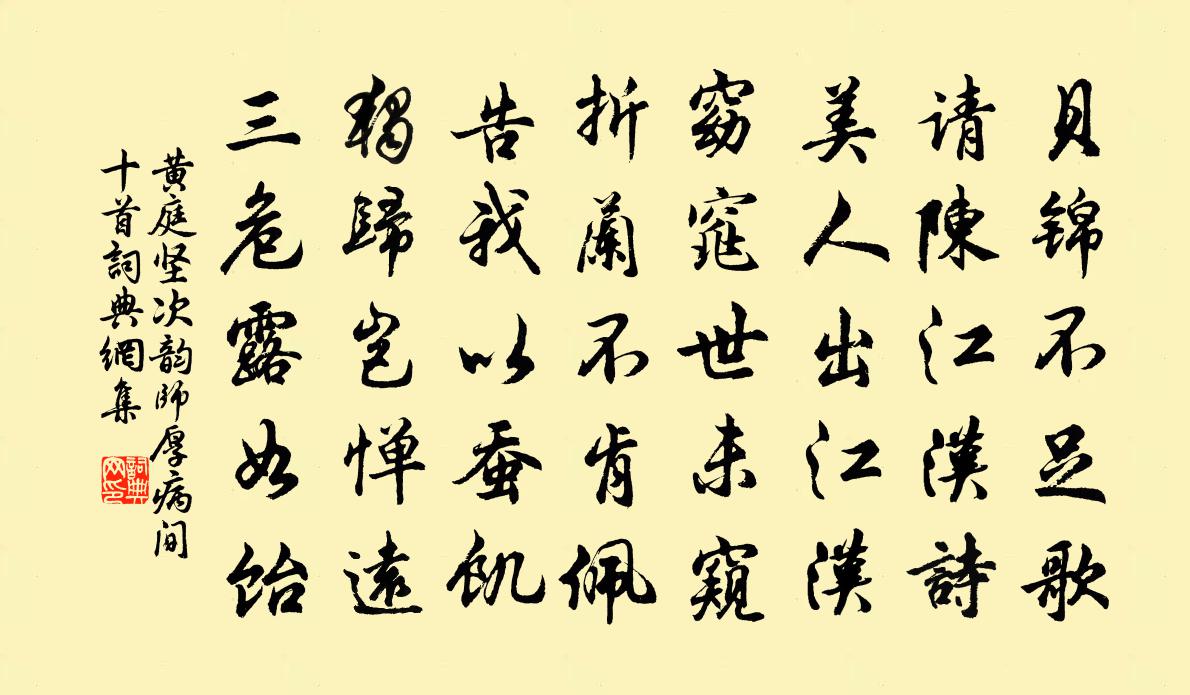 貝锦不足歌
请陳江漢詩
美人出江漢
窈窕世未窺
折蘭不肯佩
告我以蚕飢
獨歸岂惮遠
三危露如飴
黄庭坚次韵師厚病间
十首詞典網集
詞典
网印